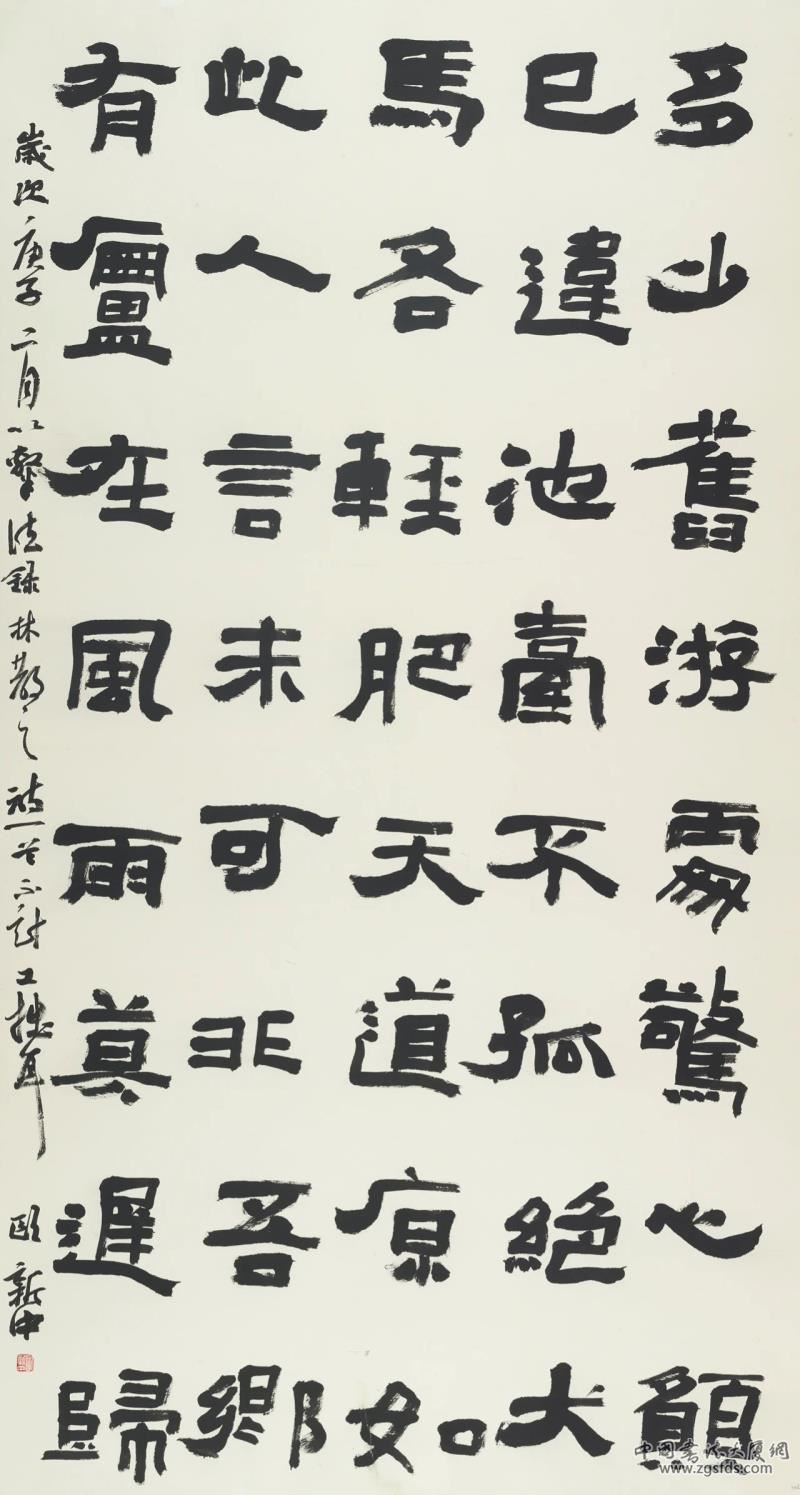 多少舊游驚心願
已違池臺不孤絕犬
馬各輕肥天道原如
此人言未可非吾鄉
有廬在風雨莫遲歸
歲次庚子二月以隸法錄林散之詩一首不計工拙耳 歐新中
中國書法大廈網
www.zgsfds.com